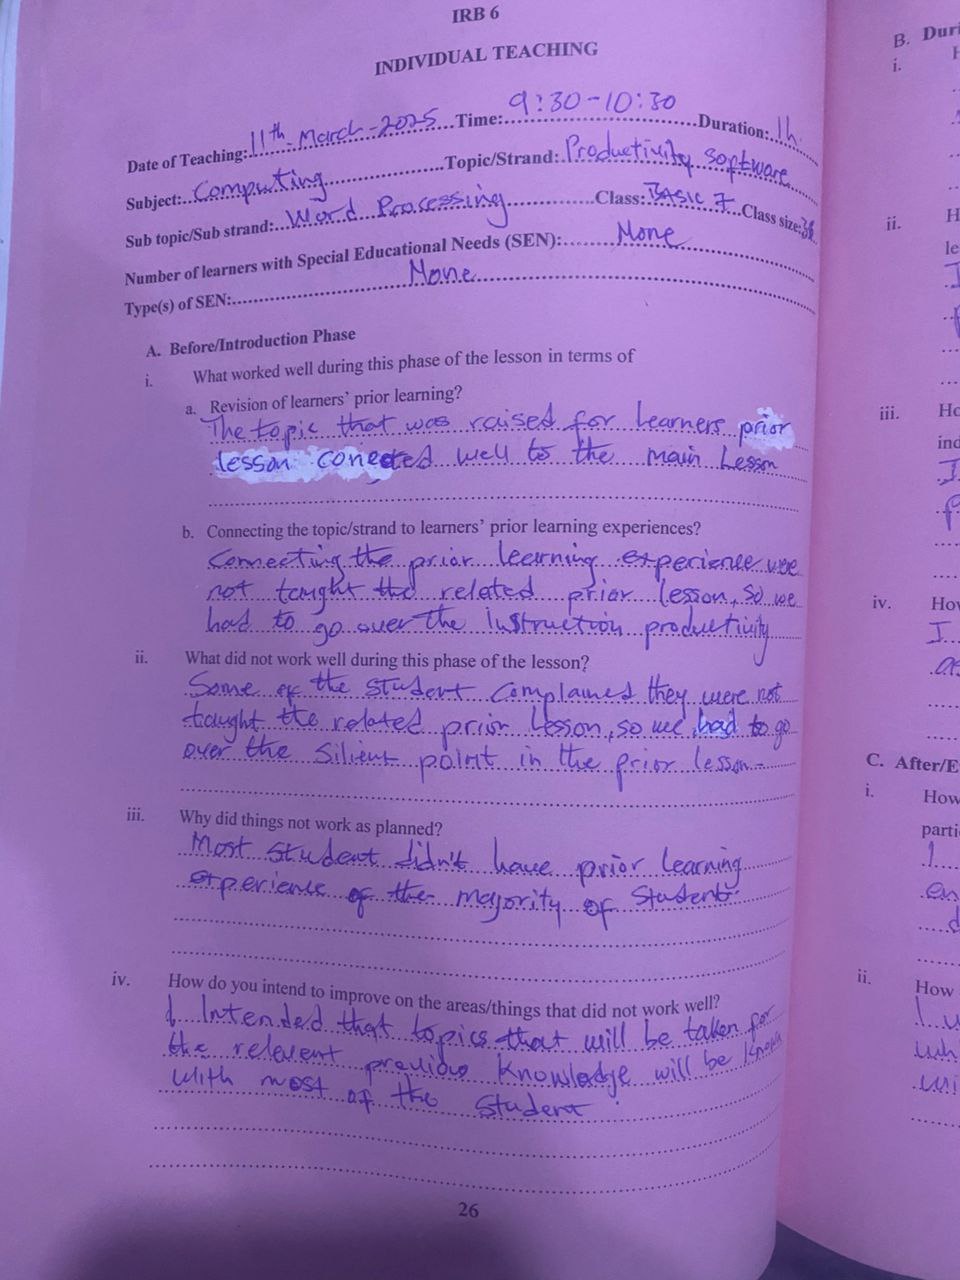 IRB 6
INDIVIDUAL TEACHING
Date of Teaching: 11th-March-2025 Time: 9:30-10:30 Duration: 1h.
Subject: Computing Topic/Strand: Productivity software
Sub topic/Sub strand: Word Processing Class: BASIC 7 Class size: 38
Number of learners with Special Educational Needs (SEN): None
Type(s) of SEN: None
A. Before/Introduction Phase
i. What worked well during this phase of the lesson in terms of
a. Revision of learners' prior learning?
The topic that was raised for learners prior
lesson conected well to the main Lesson
b. Connecting the topic/strand to learners' prior learning experiences?
Connecting the prior learning experience were
not taught the related prior lesson, so we
had to go over the instruction productivity
ii. What did not work well during this phase of the lesson?
Some of the student complained they were not
taught the related prior lesson, so we had to go
over the silient point in the prior lesson-
iii. Why did things not work as planned?
Most student didn't have prior learning
experience of the majority of student
iv. How do you intend to improve on the areas/things that did not work well?
I Intended that topics that will be taken for
the relevent previous knowladge will be known
with most of the student
26
B. Duri
i. H
ii. H
le
iii. Ho
ind
iv. How
I
as
C. After/E
i. How
parti
I
en
d
ii. How
I u
wh
wi